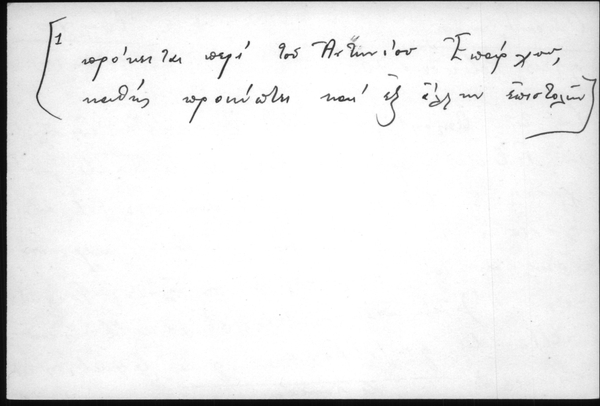 [1 πρόκειται περί τοῦ Ἀντωνίου Ἐπάρχου,
καθώς προκύπτει καί ἐξ ἄλλων ἐπιστολῶν]